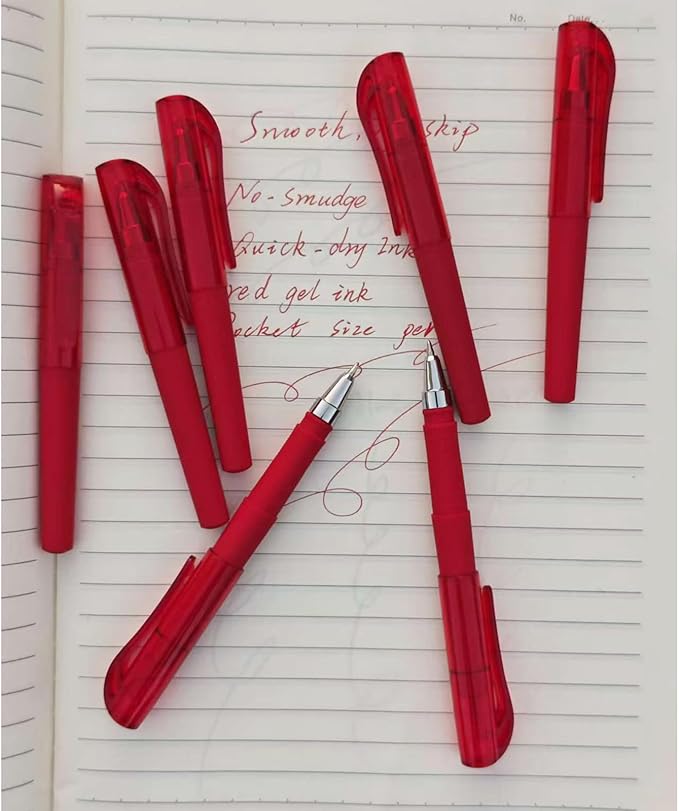 No. Date. .
Smooth, skip
No-smudge
Quick-dry Ink
red gel ink
Pocket size pen